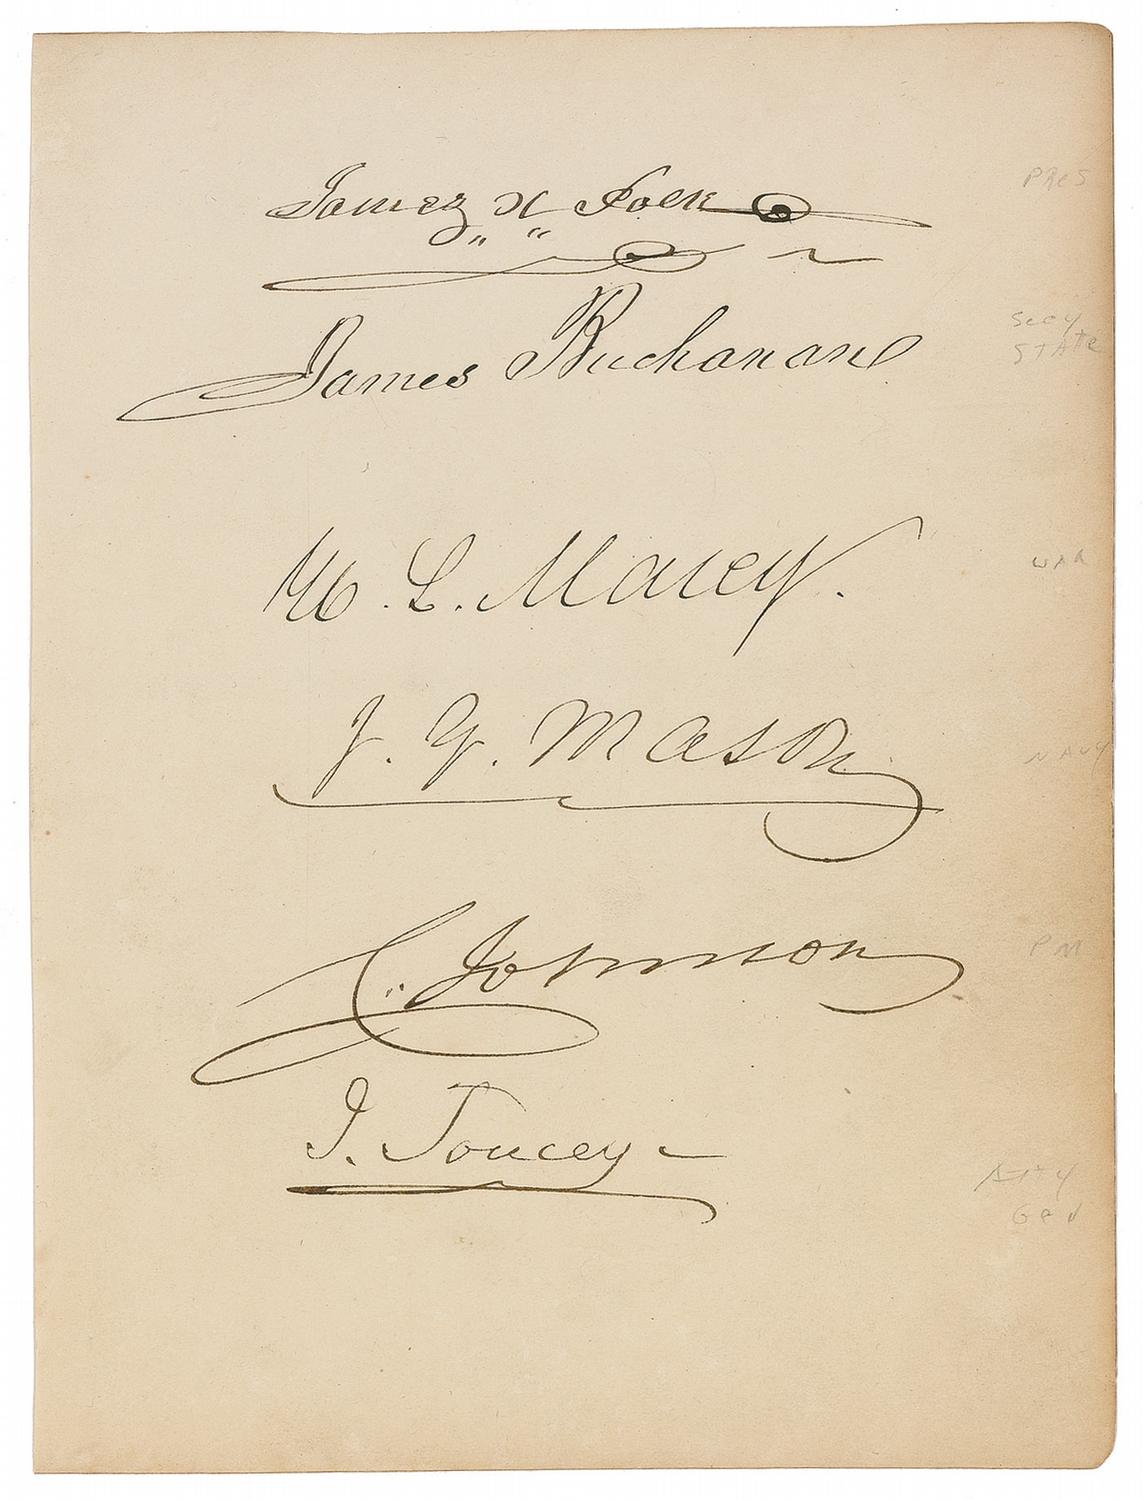 James K Polk
Pres
James Buchanan
Secy
State
W. L. Marcy.
War
J. Y. Mason
Navy
C. Johnson
PM
I. Toucey
Atty
Gen